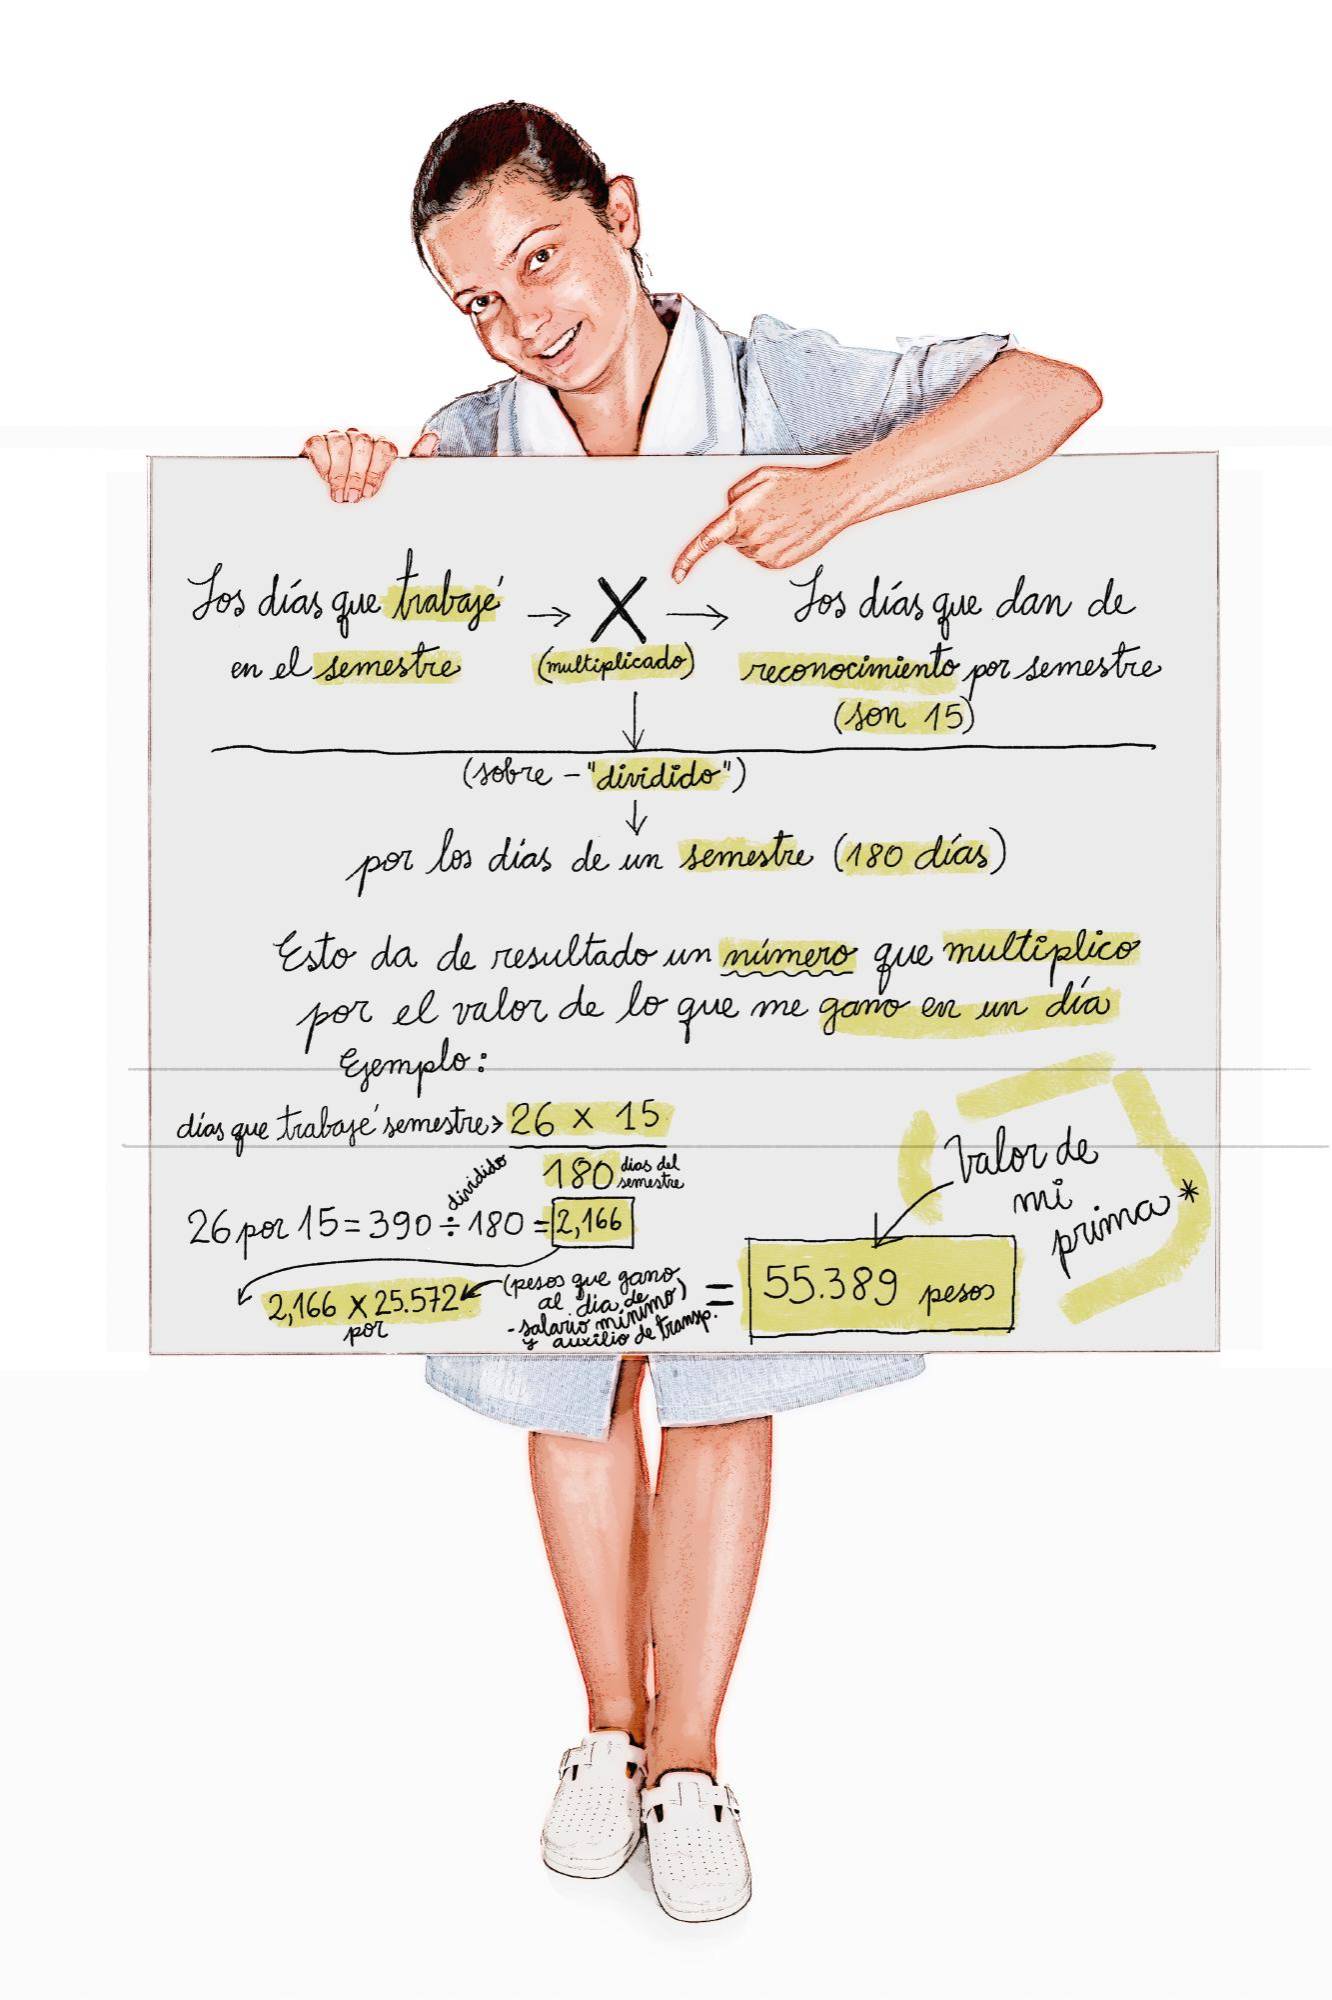 Los días que trabajé → X → Los días que dan de
en el semestre (multiplicado) reconocimiento por semestre
(son 15)
(sobre - "dividido")
por los días de un semestre (180 días)
Esto da de resultado un número que multiplico
por el valor de lo que me gano en un día
Ejemplo:
días que trabajé semestre> 26 x 15
dividido 180 dias del
semestre
26 por 15 = 390 ÷ 180 = 2,166
2,166 x 25.572
por
(pesos que gano
al dia de
- salario mínimo)
y auxilio de transp.
= 55.389 pesos
Valor de
mi
prima*